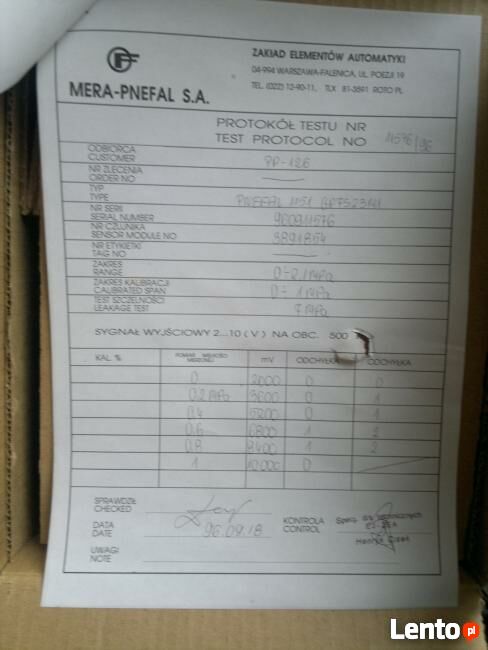 ZAKŁAD ELEMENTÓW AUTOMATYKI
04-994 WARSZAWA-FALENICA, UL. POEZJI 19
TEL. (022) 12-90-11, TLX 81-3891 ROTO PL
MERA-PNEFAL S.A.
PROTOKÓŁ TESTU NR
TEST PROTOCOL NO 11576/96
ODBIORCA
CUSTOMER PP-126
NR ZLECENIA
ORDER NO
TYP
TYPE PNEFAL 1151
NR SERII
SERIAL NUMBER 960911576
NR CZUJNIKA
SENSOR MODULE NO 3891854
NR ETYKIETKI
TAG NO
ZAKRES
RANGE 0-2,1 MPa
ZAKRES KALIBRACJI
CALIBRATED SPAN 0- 1 MPa
TEST SZCZELNOŚCI
LEAKAGE TEST 7 MPa
SYGNAŁ WYJŚCIOWY 2...10 (V) NA OBC. 500
KAL. % POMIAR WIELKOŚCI MIERZONEJ mV ODCHYŁKA ODCHYŁKA
0 2000 0 0
0.2 MPa 3600 0 1
0.4 5200 0 1
0.6 6800 1 2
0.8 8400 1 2
1 10000 0
SPRAWDZIŁ
CHECKED
DATA
DATE 96.09.18
KONTROLA
CONTROL
UWAGI
NOTE
Lento.pl